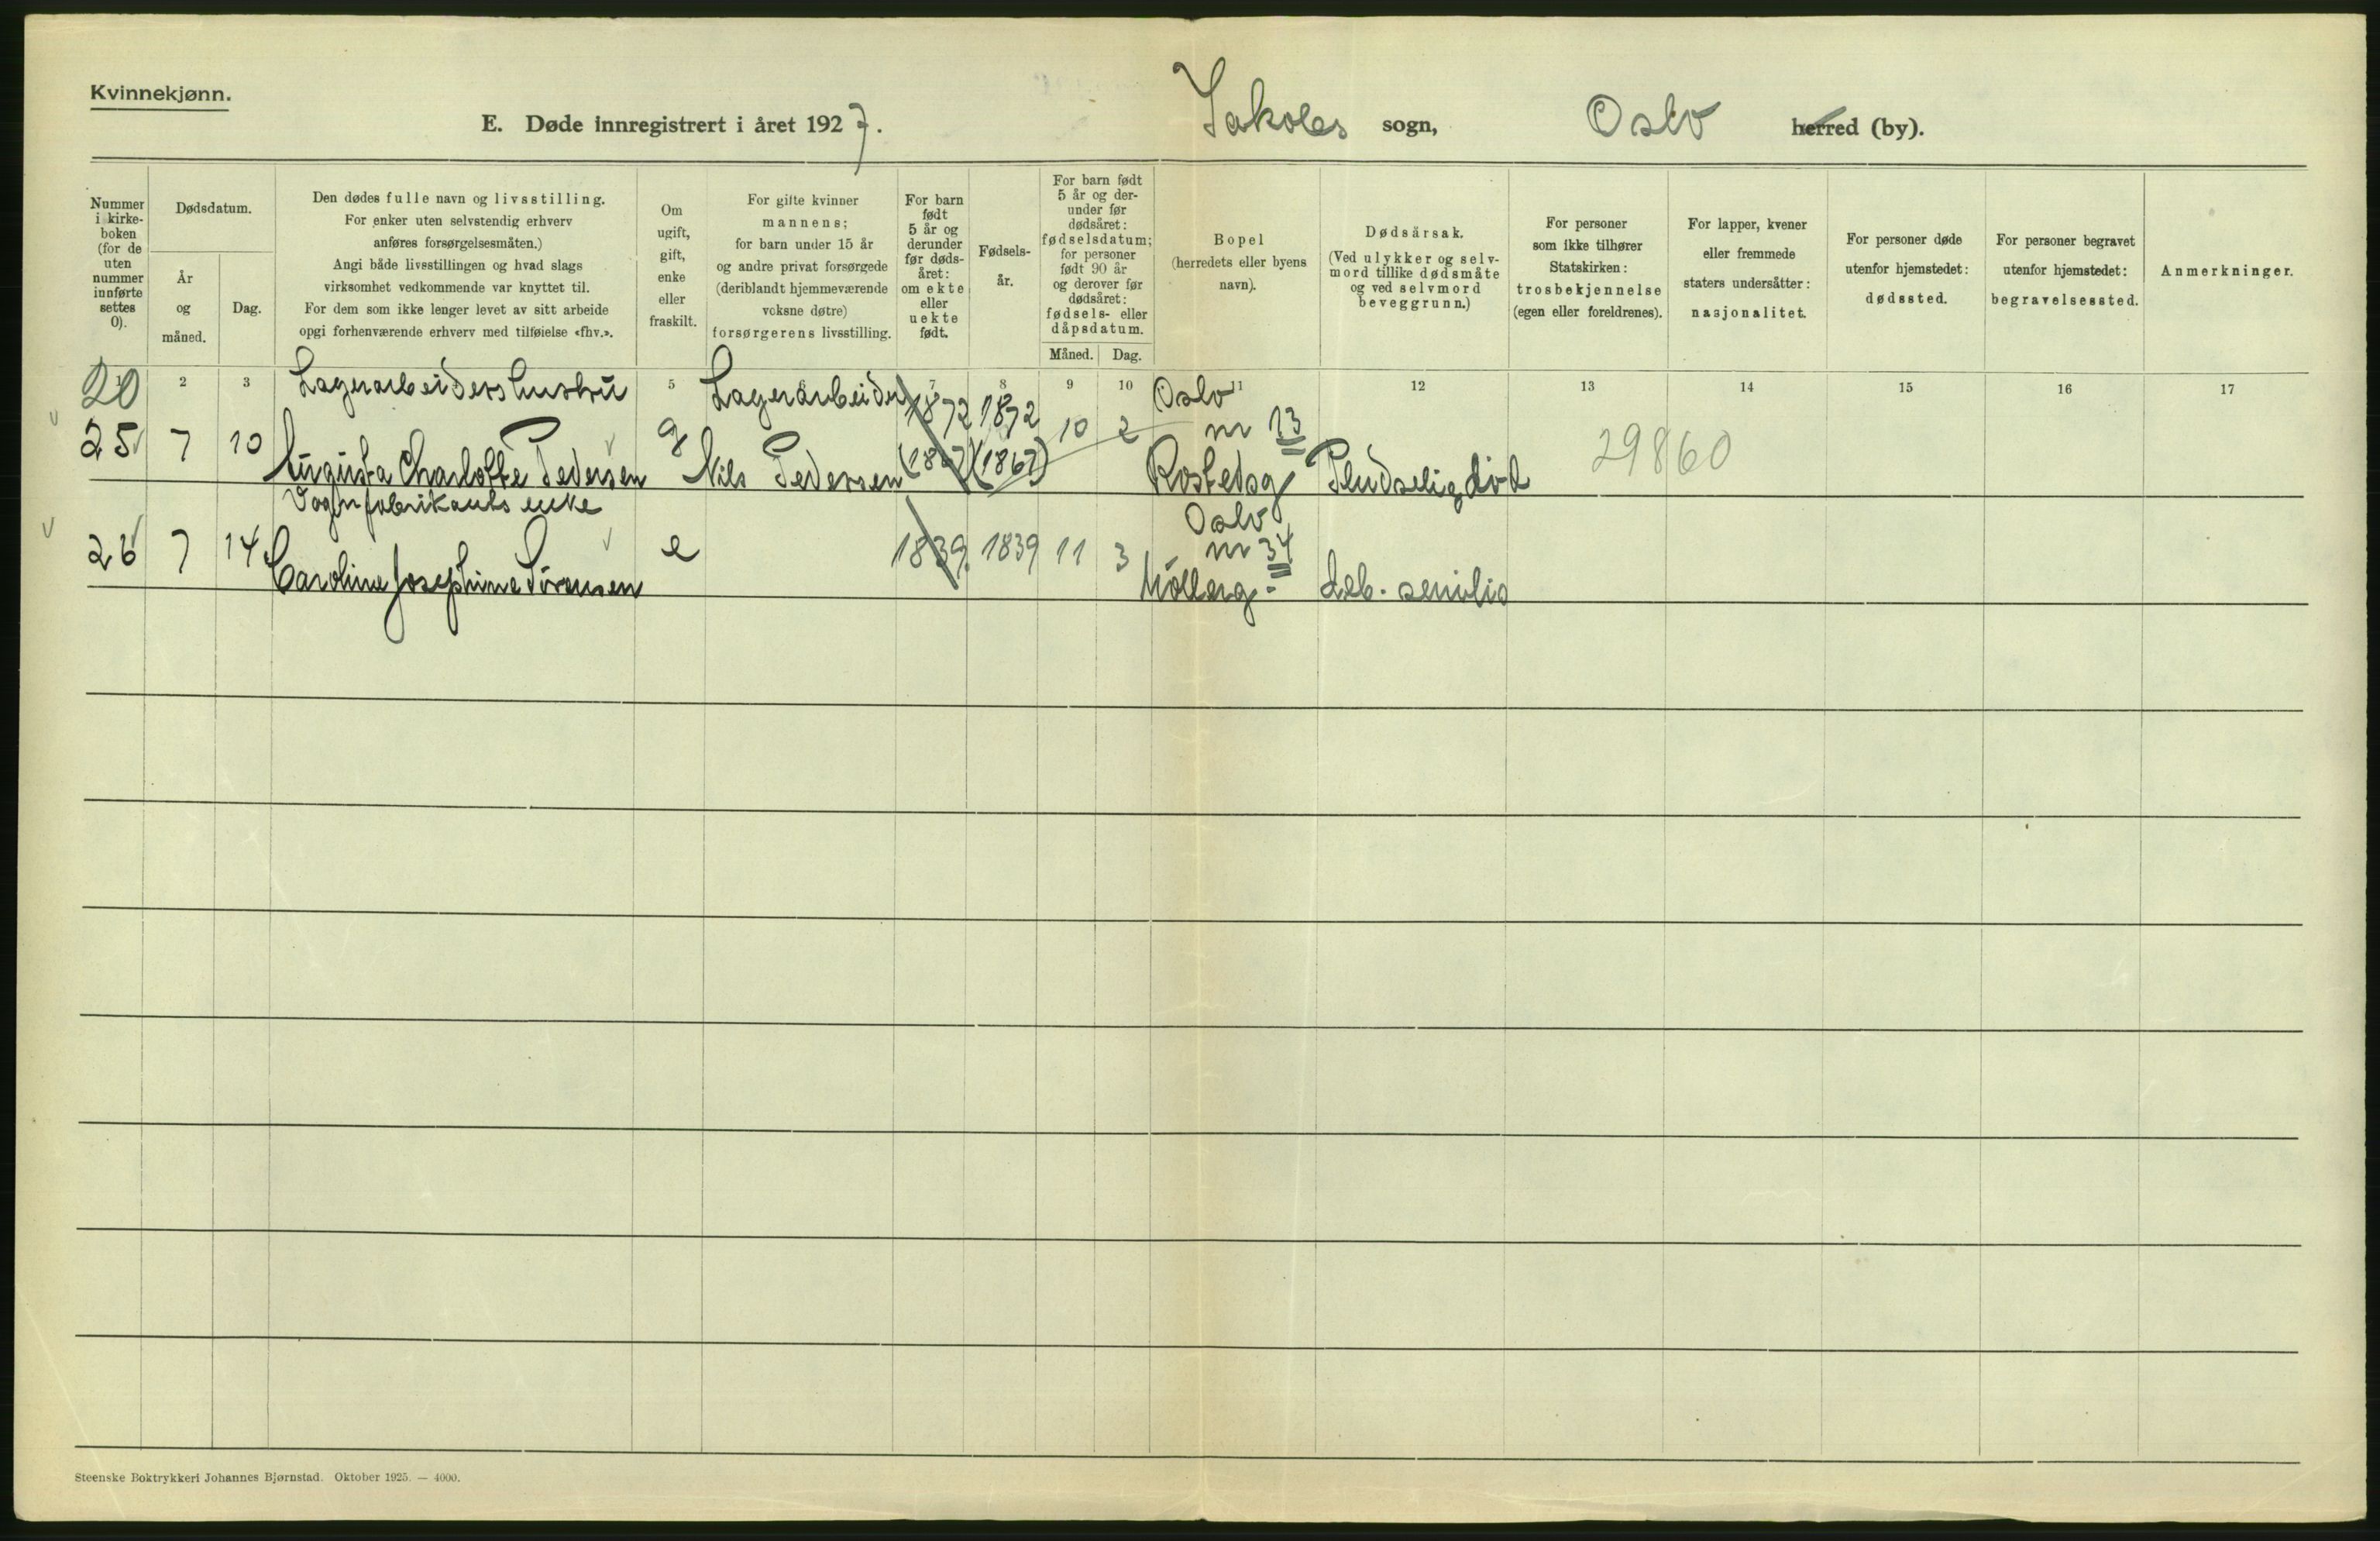 Kvinnekjønn.
E. Døde innregistrert i året 1927.
Jakobs sogn,
Oslo herred (by).
Nummer i kirke- boken (for de uten nummer innførte settes 0).
Dødsdatum.
År og måned.
Dag.
Den dødes fulle navn og livsstilling.
For enker uten selvstendig erhverv
anføres forsørgelsesmåten.)
Angi både livsstillingen og hvad slags
virksomhet vedkommende var knyttet til.
For dem som ikke lenger levet av sitt arbeide
opgi forhenværende erhverv med tilføielse «fhv.».
Om ugift, gift, enke eller fraskilt.
For gifte kvinner
mannens;
for barn under 15 år
og andre privat forsørgede
(deriblandt hjemmeværende
voksne døtre)
forsørgerens livsstilling.
For barn født 5 år og derunder før døds- året: om ekte eller uekte født.
Fødsels- år.
For barn født 5 år og der- under før dødsåret: fødselsdatum; for personer født 90 år og derover før dødsåret: fødsels- eller dåpsdatum.
Måned.
Dag.
Bopel
(herredets eller byens
navn).
Dødsårsak.
(Ved ulykker og selv-
mord tillike dødsmåte
og ved selvmord
beveggrunn.)
For personer
som ikke tilhører
Statskirken:
trosbekjennelse
(egen eller foreldrenes).
For lapper, kvener
eller fremmede
staters undersåtter:
nasjonalitet.
For personer døde
utenfor hjemstedet:
dødssted.
For personer begravet
utenfor hjemstedet:
begravelsessted.
Anmerkninger.
20 2 3 Lagerarbeiders hustru 5 Lagerarbeider 7 8 9 10 Oslo 11 12 13 14 15 16 17
25 7 10 Augusta Charlotte Pedersen g Nils Pedersen 1872 (1867) 1872 (1867) 10 2 nr 13 Rostedsg Pludselig død 29860
Vognfabrikants enke Oslo
26 7 14 Caroline Josephine Sørensen e 1839 1839 11 3 nr 34 Møllerg- deb. senilis
Steenske Boktrykkeri Johannes Bjørnstad. Oktober 1925. — 4000.